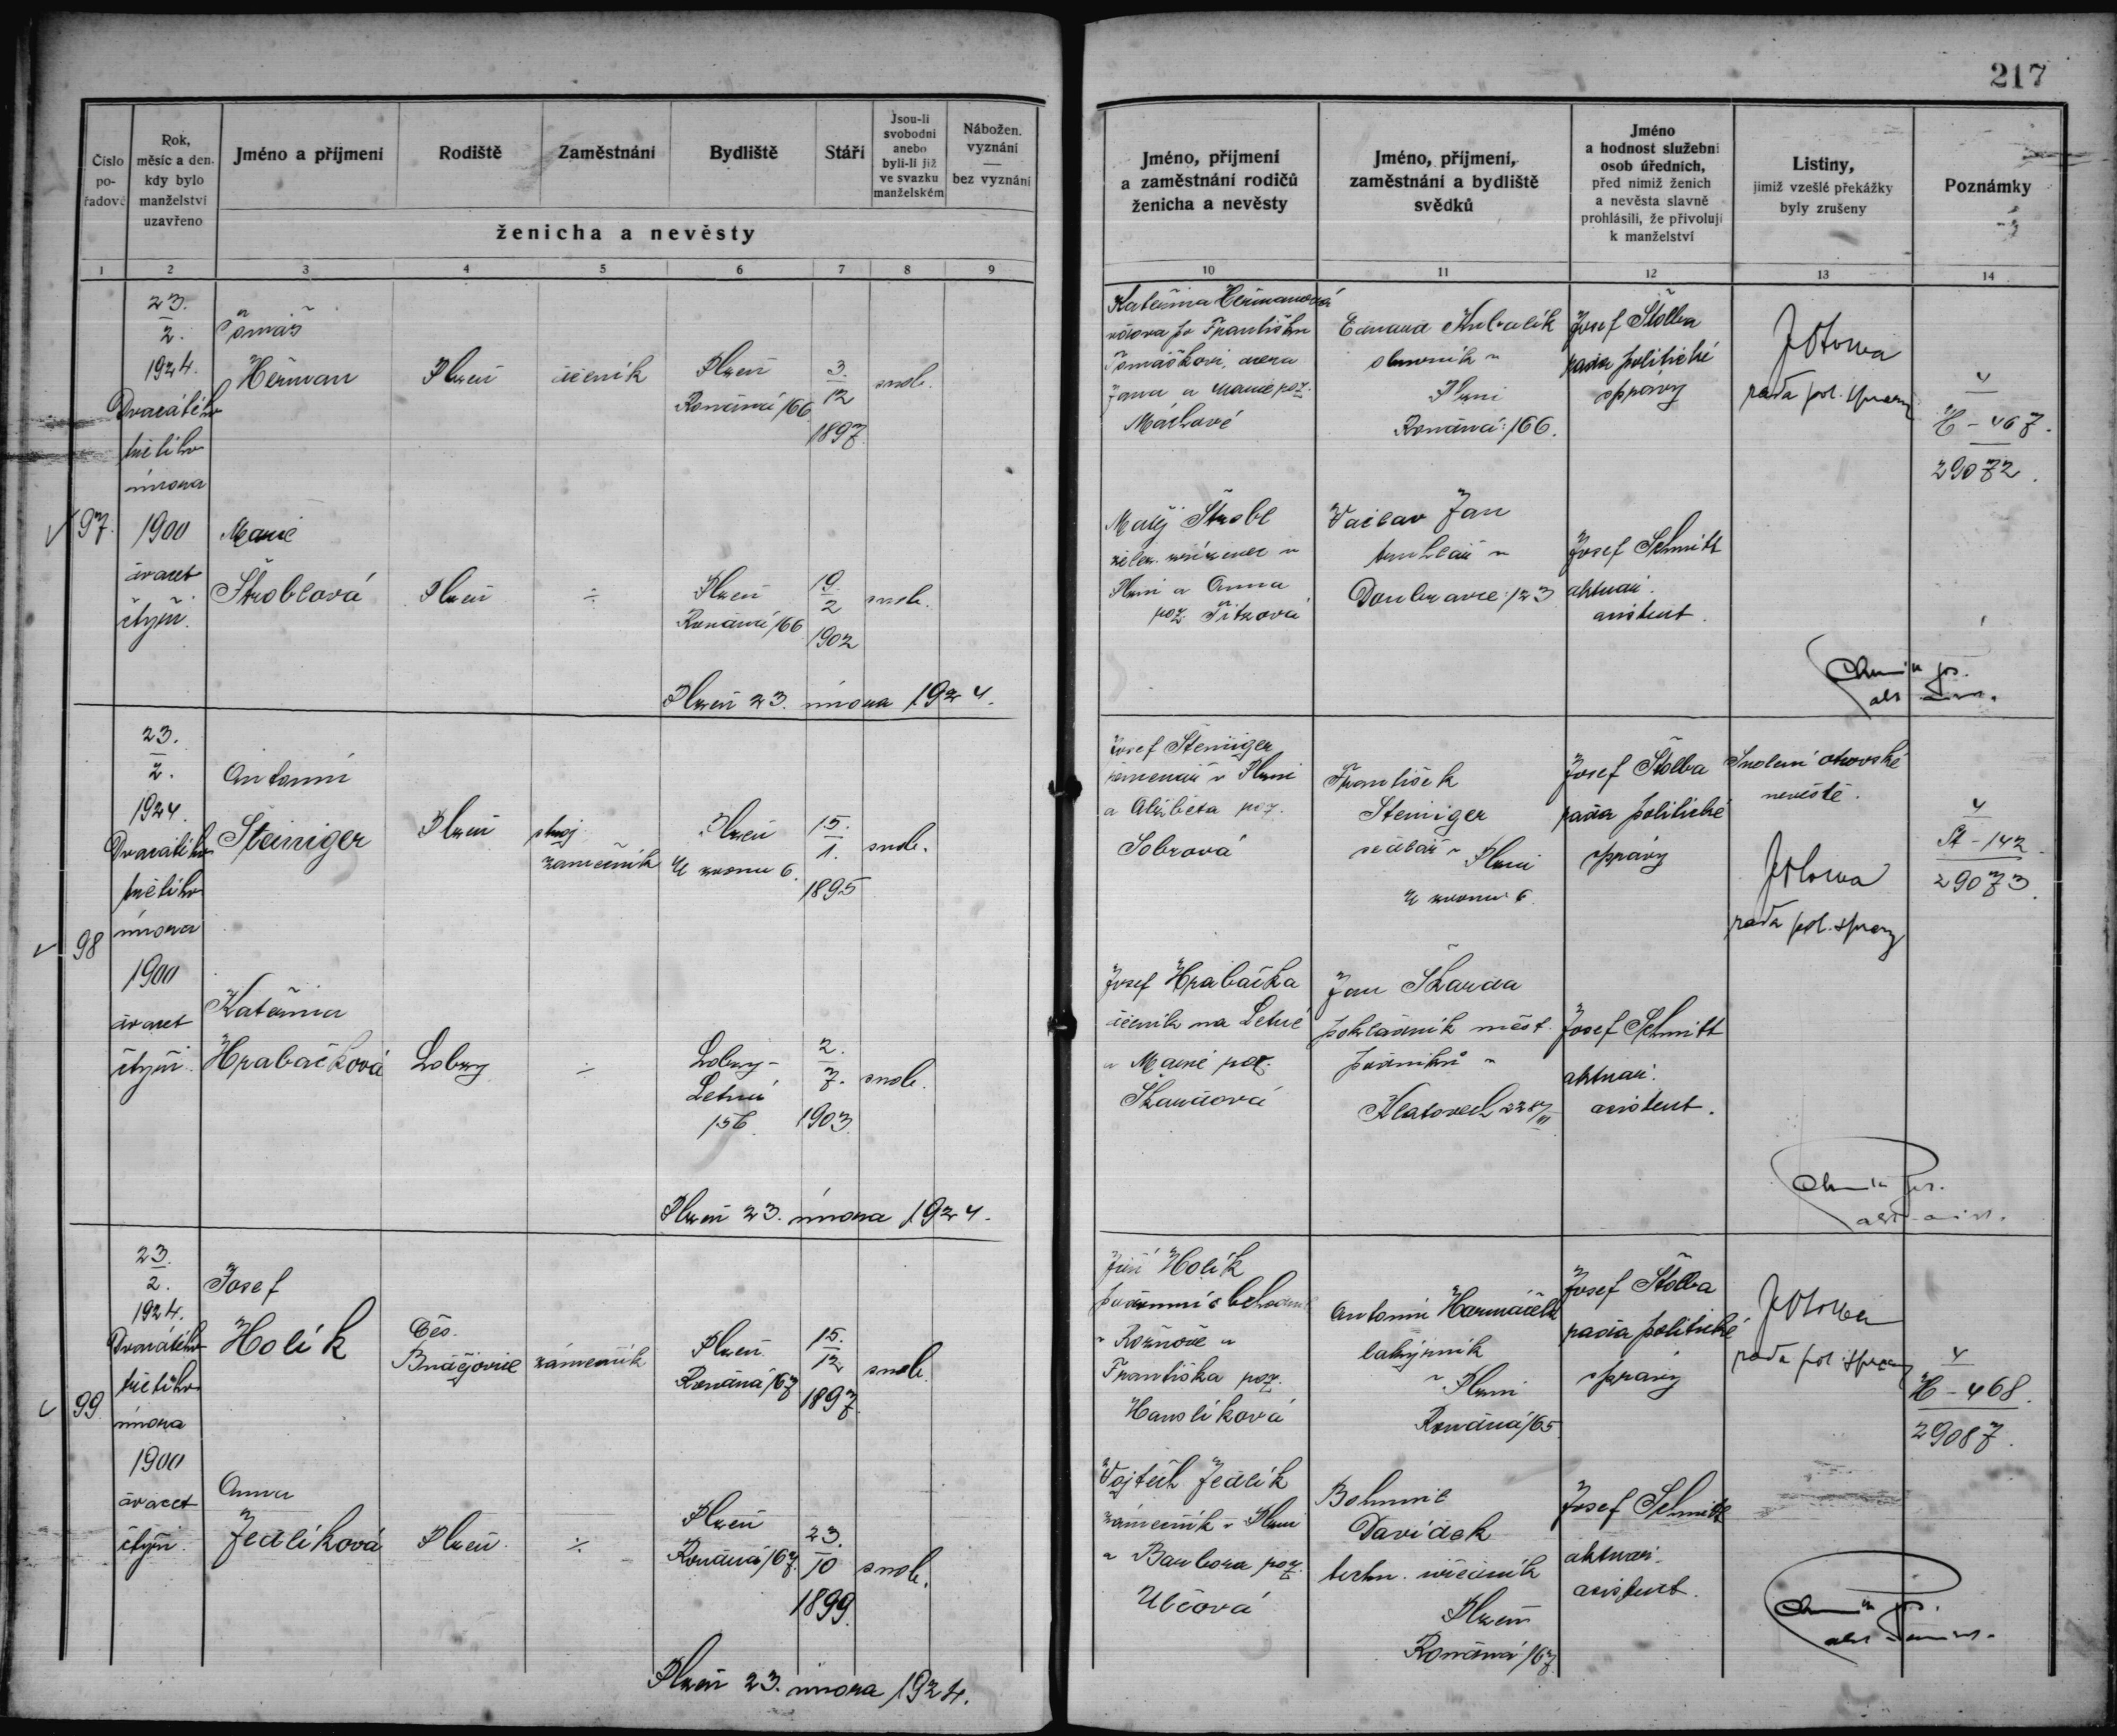 217
Číslo
po-
řadové
Rok,
měsíc a den,
kdy bylo
manželství
uzavřeno
Jméno a příjmení
Rodiště
Zaměstnání
Bydliště
Stáří
Jsou-li
svobodni
anebo
byli-li již
ve svazku
manželském
Nábožen.
vyznání
—
bez vyznání
ženicha a nevěsty
1 2 3 4 5 6 7 8 9
Jméno, příjmení
a zaměstnání rodičů
ženicha a nevěsty
Jméno, příjmení,
zaměstnání a bydliště
svědků
Jméno
a hodnost služební
osob úředních,
před nimiž ženich
a nevěsta slavně
prohlásili, že přivolují
k manželství
Listiny,
jimiž vzešlé překážky
byly zrušeny
Poznámky
10 11 12 13 14
97.
23.
2.
1924.
Dvacátého
třetího
února
1900
dvacet
čtyři.
Tomáš
Heřman
Plzeň
dělník
Plzeň
166
3.
12
1897
svob.
Marie
Štroblová
Plzeň
÷
Plzeň
166
19.
2
1902
svob.
Plzeň 23. února 1924.
Kateřina Heřmanová
Františku
Tomáškovi, dcera
Jana a Marie roz.
Máchové
Plzni
166.
Josef Štolba
rada politické
správy
rada pol. správy
4
H - 467.
29072.
Matěj Štrobl
Plzni a Anna
roz.
Václav Jan
truhlář v
Doubravce 123
Josef Schmitt
aktuár.
asistent.
98
23.
2.
1924.
Dvacátého
třetího
února
1900
dvacet
čtyři.
Antonín
Steiniger
Plzeň
stroj.
zámečník
Plzeň
U zvonu 6.
15.
1.
1895
svob.
Kateřina
Hrabačková
Lobzy
÷
Lobzy-
Letná
156
2.
7.
1903
svob.
Plzeň 23. února 1924.
Josef Steiniger
v Plzni
a Alžběta roz.
Sobrová
František
Steiniger
Plzni
U zvonu 6
Josef Štolba
rada politické
správy
Svolení otcovské
nevěstě.
rada pol. správy
4
St - 142
29073.
Josef Hrabačka
dělník na Letné
a Marie roz.
Škardová
Jan Škarda
pokladník měst.
podniků v
Klatovech
Josef Schmitt
aktuár.
asistent.
99
23.
2.
1924.
Dvacátého
třetího
února
1900
dvacet
čtyři.
Josef
Holík
Čes.
Budějovice
zámečník
Plzeň
167
15.
12
1897.
svob.
Anna
Jedlíková
Plzeň.
÷
Plzeň
167.
23.
10
1899
svob.
Plzeň 23. února 1924.
Jiří Holík
podomní obchodník
v Rožnově a
Františka roz.
Hanslíková
Antonín
lakýrník
v Plzni
165
Josef Štolba
rada politické
správy
rada pol. správy
4
H - 468.
29087.
Vojtěch Jedlík
zámečník v Plzni
a Barbora roz.
Ulčová
Bohumil
Davídek
techn. úředník
Plzeň
167
Josef Schmitt
aktuár.
asistent.